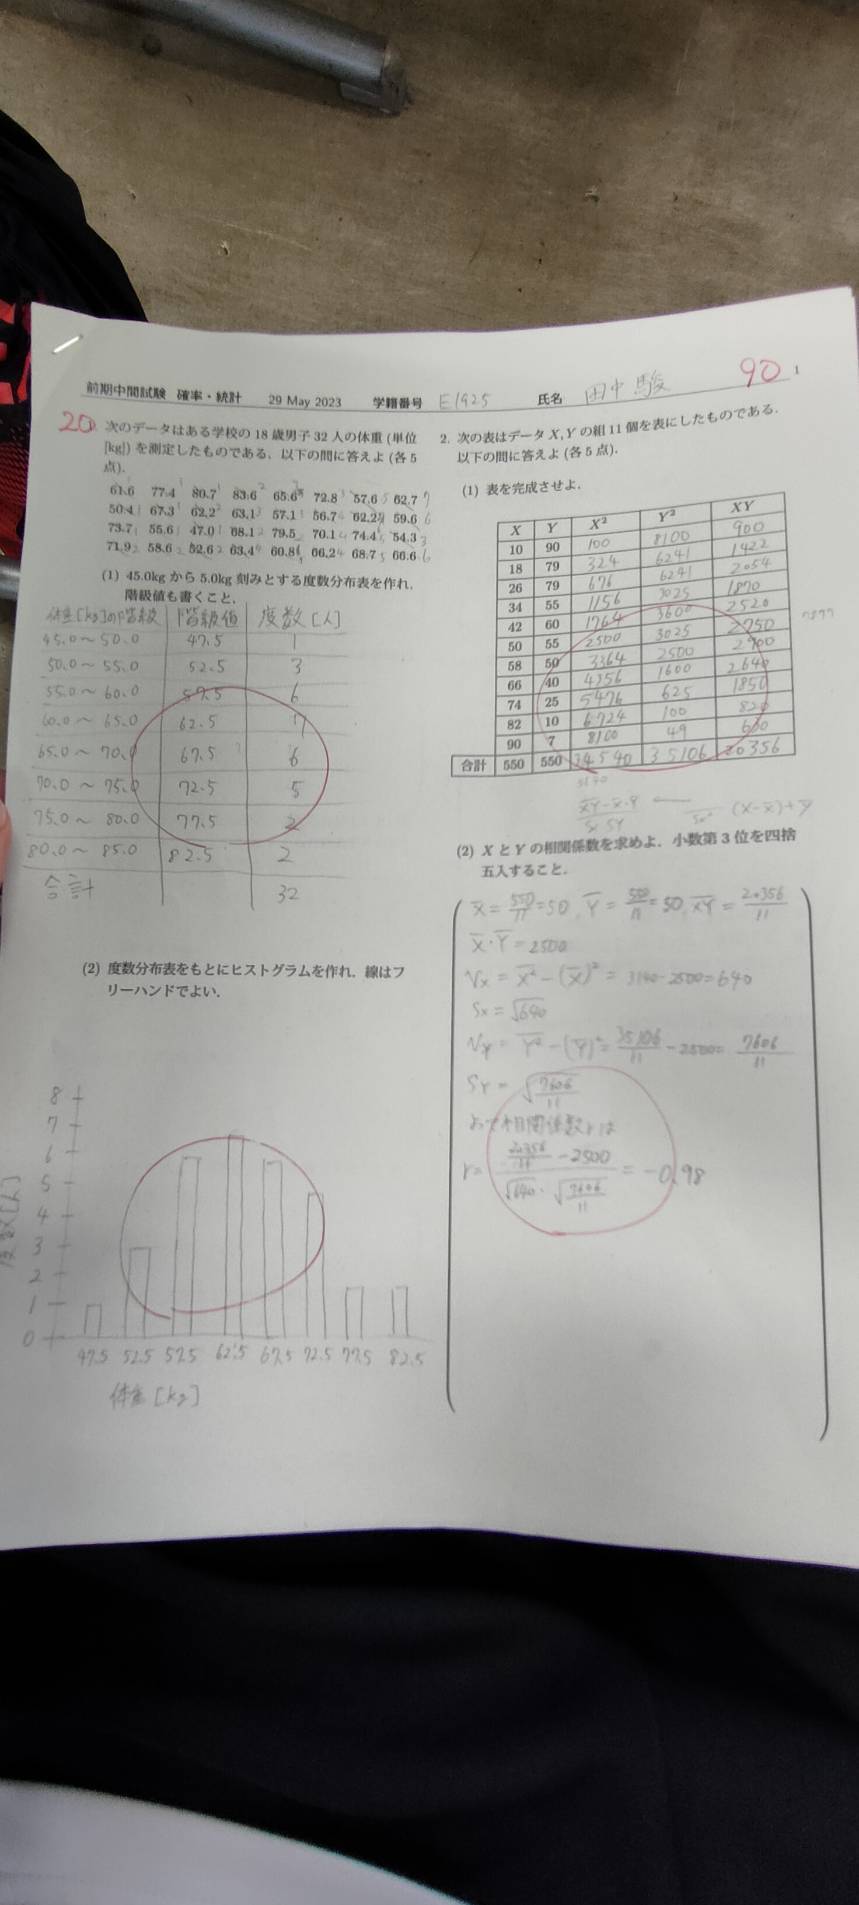 前期中間試験 確率・統計 29 May 2023 学籍番号 E1925 氏名 田中 駿 90 1
20
次のデータはある学校の 18 歳男子 32 人の体重 (単位
[kg]) を測定したものである. 以下の問に答えよ (各 5
点).
61.6 77.4 80.7 83.6 65.6 72.8 57.6 62.7
50.4 67.3 62.2 63.1 57.1 56.7 62.2 59.6
73.7 55.6 47.0 68.1 79.5 70.1 74.4 54.3
71.9 58.6 52.6 63.4 60.8 66.2 68.7 66.6
(1) 45.0kg から 5.0kg 刻みとする度数分布表を作れ.
階級値も書くこと.
体重[kg]の階級 階級値 度数[人]
45.0～50.0 47.5 1
50.0～55.0 52.5 3
55.0～60.0 57.5 6
60.0～65.0 62.5 7
65.0～70.0 67.5 6
70.0～75.0 72.5 5
75.0～80.0 77.5 2
80.0～85.0 82.5 2
合計 32
(2) 度数分布表をもとにヒストグラムを作れ. 線はフ
リーハンドでよい.
8
7
6
5
4
3
2
1
0
度数[人]
47.5 52.5 57.5 62.5 67.5 72.5 77.5 82.5
体重[kg]
2. 次の表はデータ X, Y の組 11 個を表にしたものである.
以下の問に答えよ (各 5 点).
(1) 表を完成させよ.
X Y X² Y² XY
10 90 100 8100 900
18 79 324 6241 1422
26 79 676 6241 2054
34 55 1156 3025 1870
42 60 1764 3600 2520
50 55 2500 3025 2750
58 50 3364 2500 2900
66 40 4356 1600 2640
74 25 5476 625 1850
82 10 6724 100 820
90 7 8100 49 630
合計 550 550 34540 35106 20356
(2) X と Y の相関係数を求めよ. 小数第 3 位を四捨
五入すること.
X̄ = 550/11 = 50, Ȳ = 550/11 = 50, X̄Ȳ = 20356/11
X̄・Ȳ = 2500
Vx = X̄² - (X̄)² = 3140 - 2500 = 640
Sx = √640
Vy = Ȳ² - (Ȳ)² = 35106/11 - 2500 = 7606/11
SY = √7606/11
よって相関係数rは
r = (20356/11 - 2500)/(√640・√7606/11) = -0.98